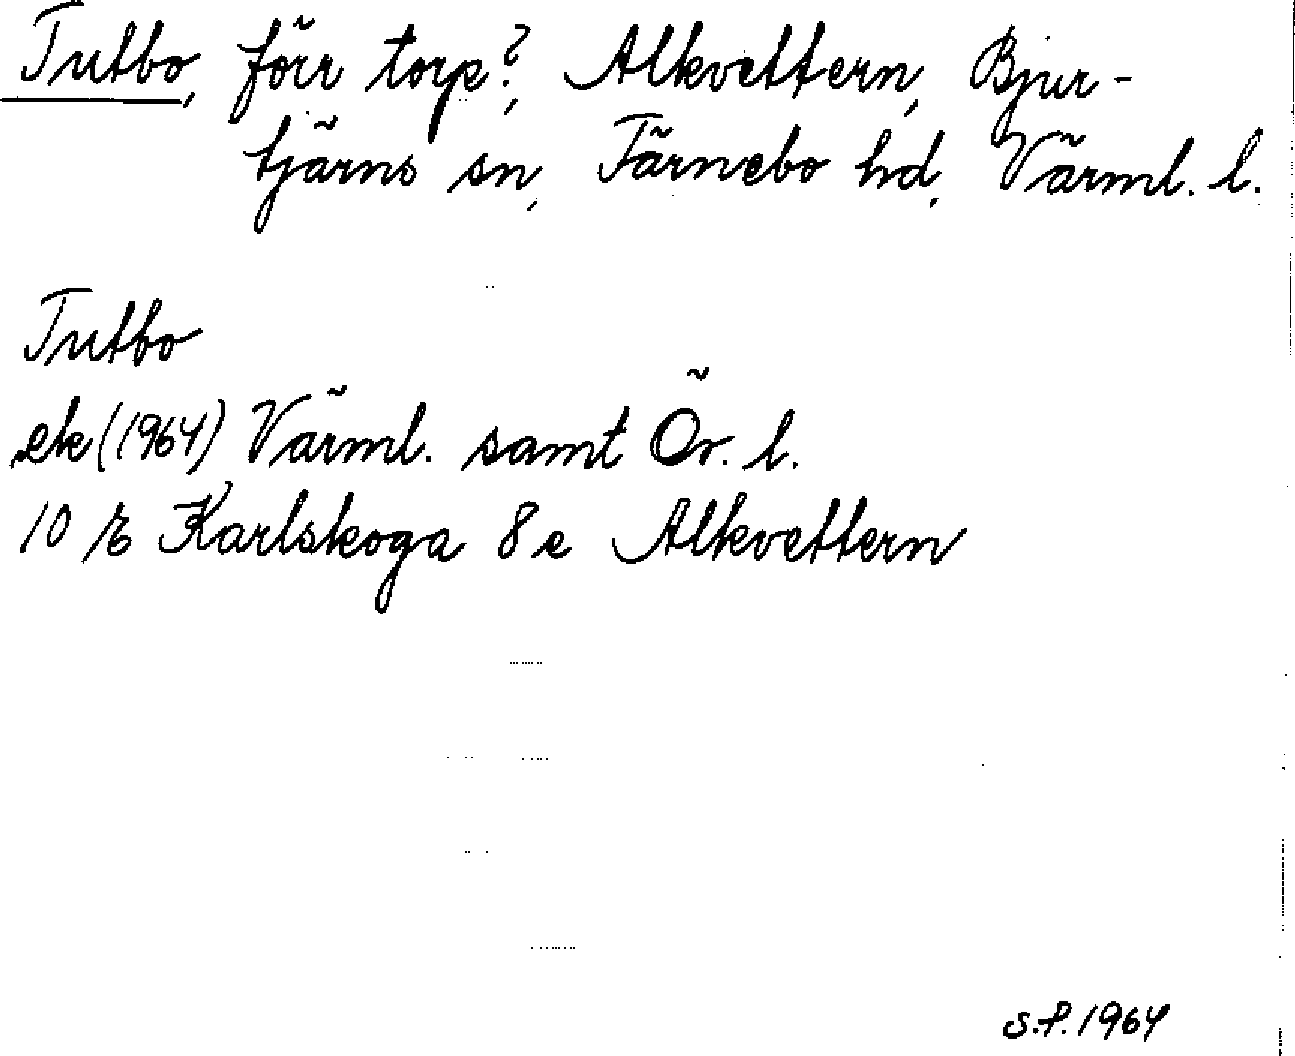 Tutbo, förr torp?, Alkvettern, Bjur-
tjärns sn, Färnebo hd, Värml. l.
Tutbo
ek (1964) Värml. samt Ör. l.
10 E Karlskoga 8 e Alkvettern
S.F. 1964